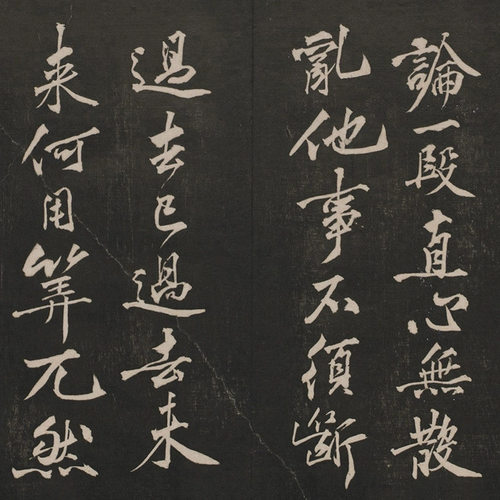 論一段直心無散
亂他事不須斷
過去已過去未
來何用筭兀然